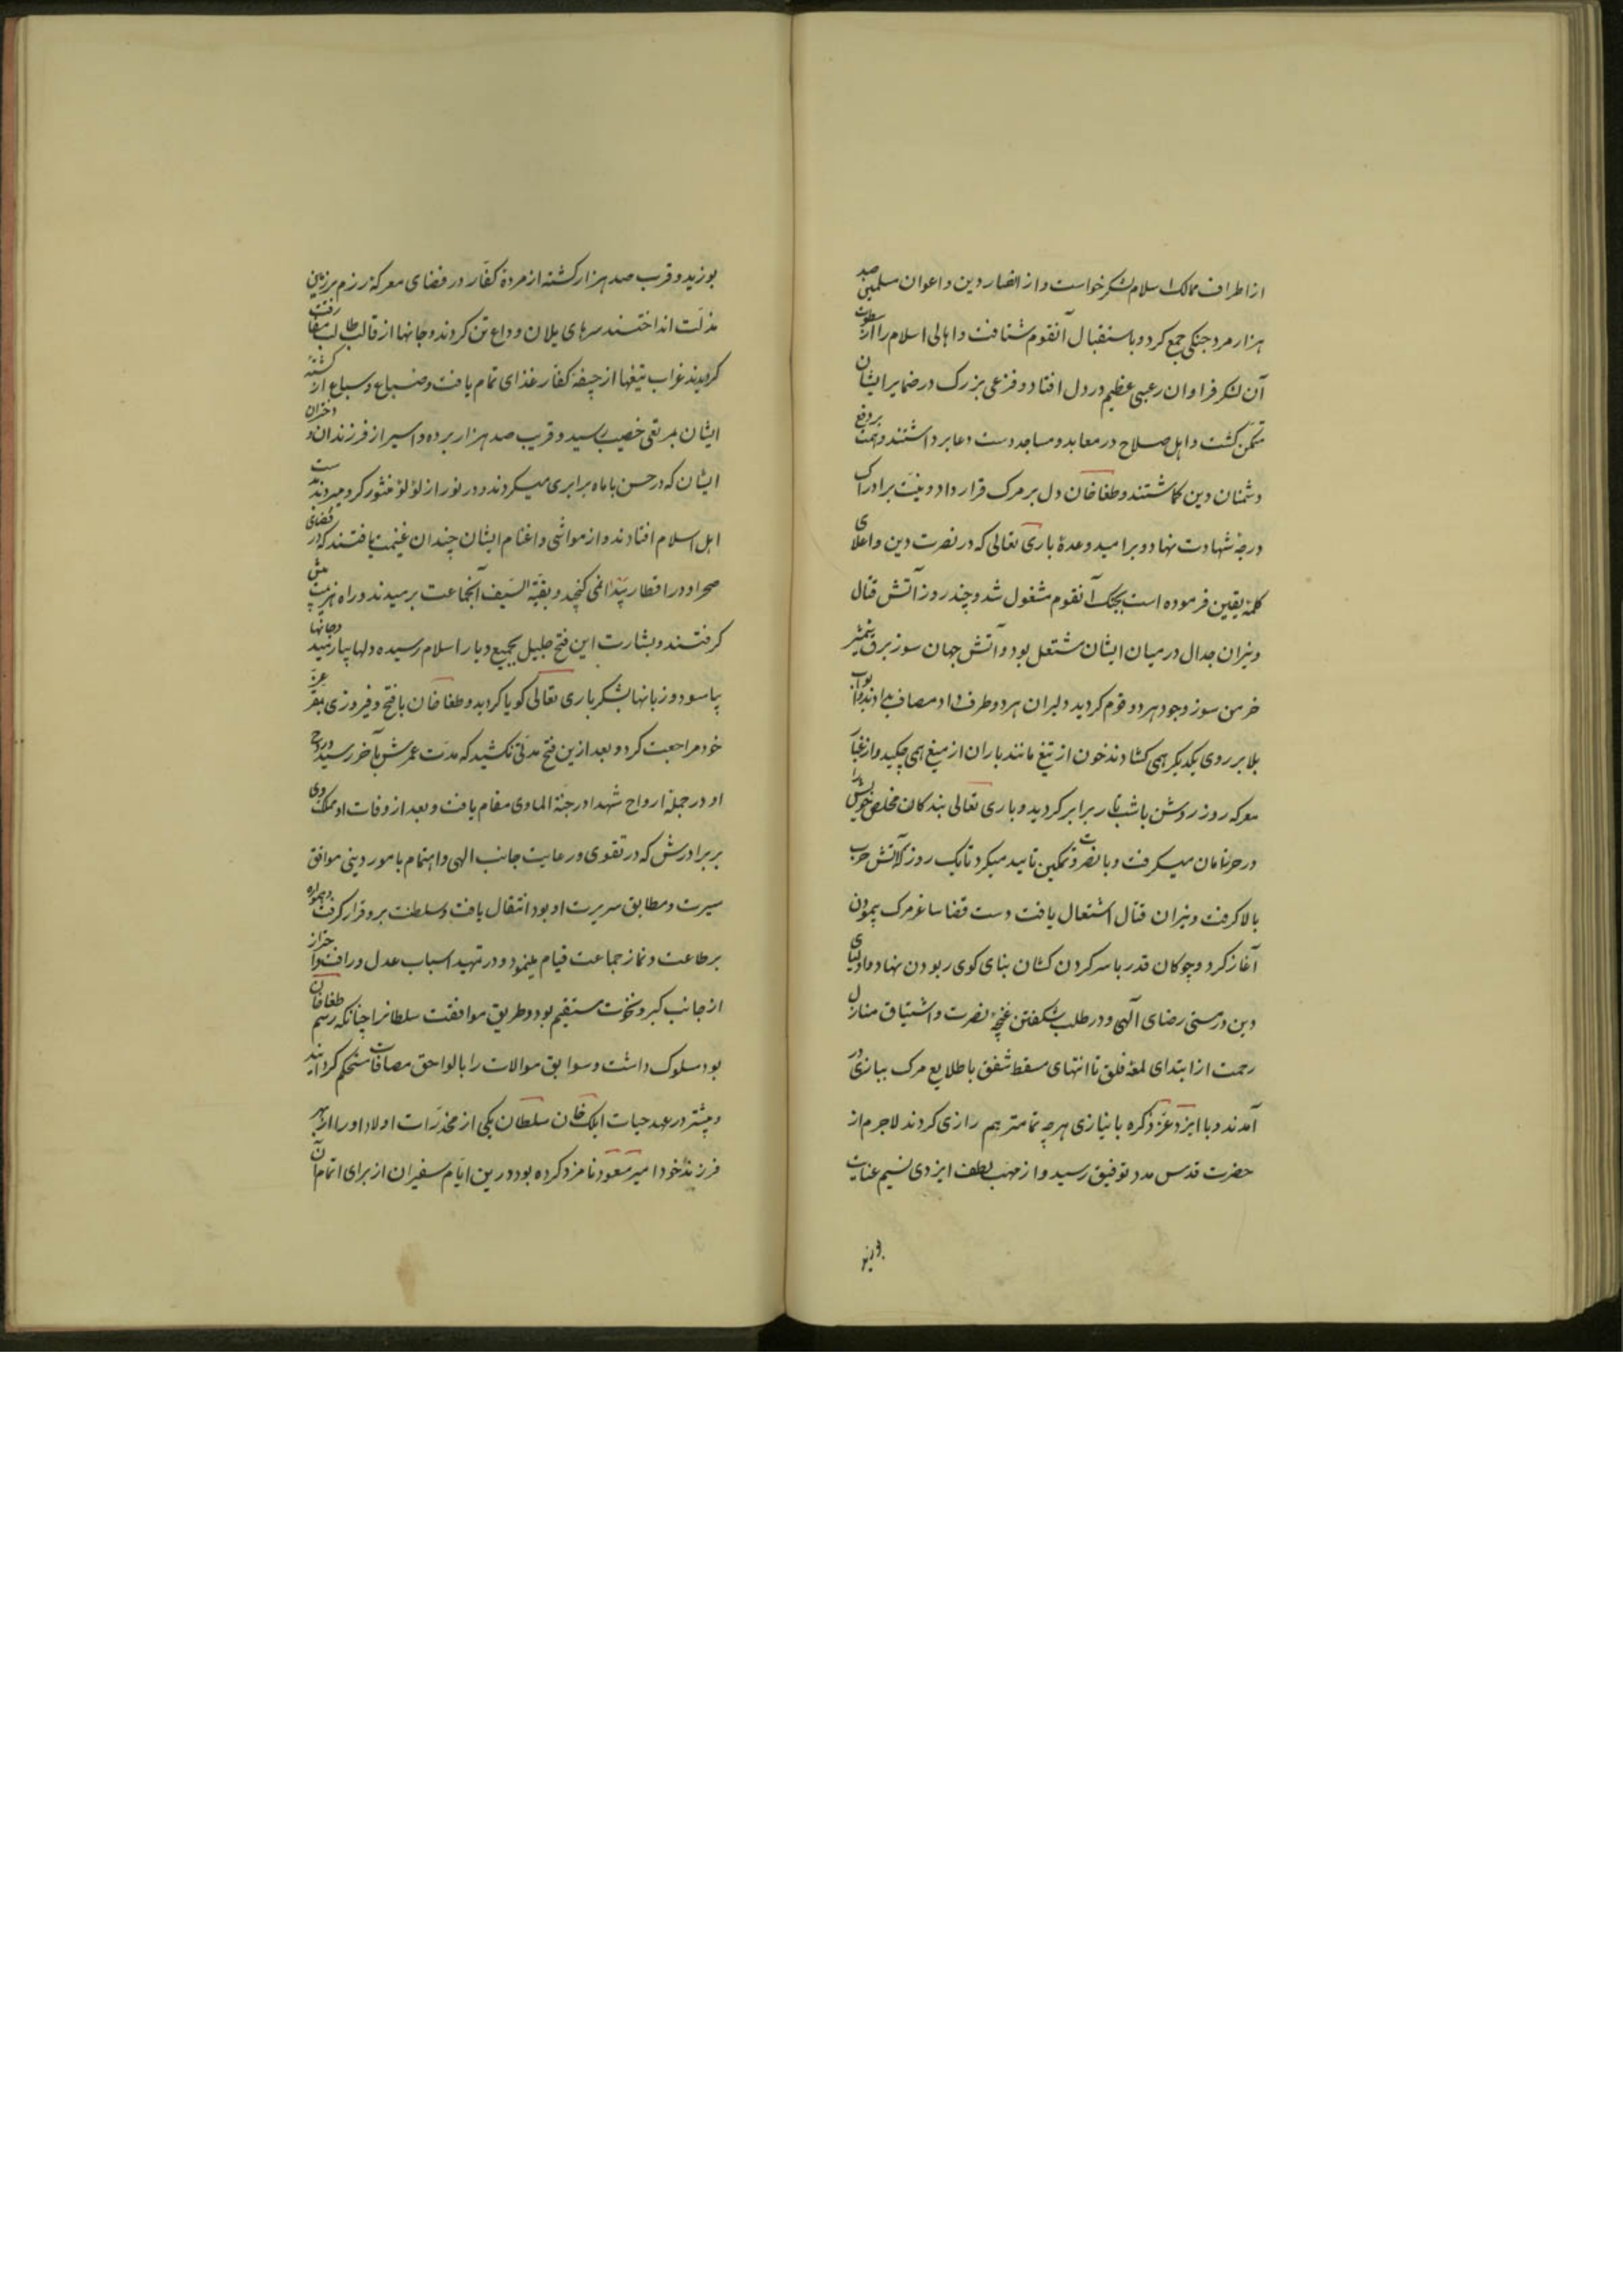 از اطراف ممالک اسلام لشکر خواست و از انصار دین و اعوان مسلمین صد
هزار مرد جنکی جمع کرد و باستقبال آنقوم شتافت و اهالی اسلام را از سطوت
آن لشکر فراوان رعبی عظیم در دل افتاد و فزعی بزرک در ضمایر ایشان
متمکن کشت و اهل صلاح در معابد و مساجد دست دعا برداشتند و همت بر دفع
دشمنان دین کماشتند و طغاخان دل بر مرک قرار داد و نیت بر ادراک
درجۀ شهادت نهاد و بر امید وعدۀ باری تعالی که در نصرت دین و اعلای
کلمۀ یقین فرموده است بجنک آنقوم مشغول شد و چند روز آتش قتال
و نیران جدال در میان ایشان مشتعل بود و آتش جهان سوز برق شمشیر
خرمن سوز وجود هر دو قوم کردید دلیران هر دو طرف داد مصاف بدادند و ابواب
بلا بر روی یکدیکر همی کشادند خون از تیغ مانند باران از میغ همی چکید و از غبار
معرکه روز روشن با شب تار برابر کردید و باری تعالی بندکان مخلص خویش را
در حرز امان میکرفت و با نصرت و تمکین تایید میکرد تا یک روز که آتش حرب
بالا کرفت و نیران قتال اشتعال یافت دست قضا ساغر مرک پیمودن
آغاز کرد و چوکان قدر با سر کردن کشان بنای کوی ربودن نهاد و اولیای
دین در مستی رضای آلهی و در طلب شکفتن غنچۀ نصرت و اشتیاق منازل
رحمت از ابتدای لمعۀ فلق تا انتهای مسقط شفق با طلایع مرک ببازی در
آمدند و با ایزد عز ذکره با نیازی هر چه تمامتر هم رازی کردند لاجرم از
حضرت قدس مدد توفیق رسید و از مهب لطف ایزدی نسیم عنایت
بوزید و قرب صد هزار کشته از مردۀ کفار در فضای معرکۀ رزم بر زمین
مذلت انداختند سرهای یلان وداع تن کردند و جانها از قالب طالب مفارقت
کردیدند غراب تیغها از جیفۀ کفار غذای تمام یافت و ضباع و سباع از کشتۀ
ایشان بمرتعی خصیب رسید و قریب صد هزار برده و اسیر از فرزندان و دختران
ایشان که در حسن با ماه برابری میکردند و در نور از لؤلؤ منثور کرو میبردند بدست
اهل اسلام افتادند و از مواشی و اغنام ایشان چندان غنیمت یافتند که در فضای
صحرا و در اقطار بیدا نمی کنجد و بقیّة السّیف آنجماعت برمیدند و راه هزیمت پیش
کرفتند و بشارت این فتح جلیل بجمیع دیار اسلام رسیده دلها بیارمید و جانها
بیاسود و زبانها بشکر باری تعالی کویا کردید و طغاخان با فتح و فیروزی بمقر عزّ
خود مراجعت کرد و بعد ازین فتح مدتی نکشید که مدت عمرش بآخر رسید و روح
او در جملۀ ارواح شهدا در جنة الماوی مقام یافت و بعد از وفات او مملکت وی
بر برادرش که در تقوی و رعایت جانب الهی و اهتمام بامور دینی موافق
سیرت و مطابق سریرت او بود انتقال یافت و سلطنت برو قرار کرفت و همواره
بر طاعت و نماز جماعت قیام مینمود و در تمهید اسباب عدل و رافت و احتراز
از جانب کبر و نخوت مستقیم بود و طریق موافقت سلطانرا چنانکه رسم طغاخان
بود مسلوک داشت و سوابق موالات را با لواحق مصافات مستحکم کردانید
و پیشتر در عهد حیات ایلک خان سلطان یکی از مخدّرات اولاد او را از بهر
فرزند خود امیر مسعود نامزد کرده بود درین ایام سفیران از برای اتمام آن